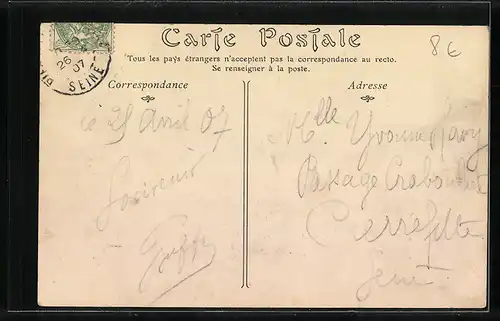 Carte Postale
8€
Tous les pays étrangers n'acceptent pas la correspondance au recto.
Se renseigner à la poste.
26
07
SEINE
Correspondance
Adresse
le 25 Avril 07
Souvenir
Mlle Yvonne
Passage
Pierrefitte
Seine